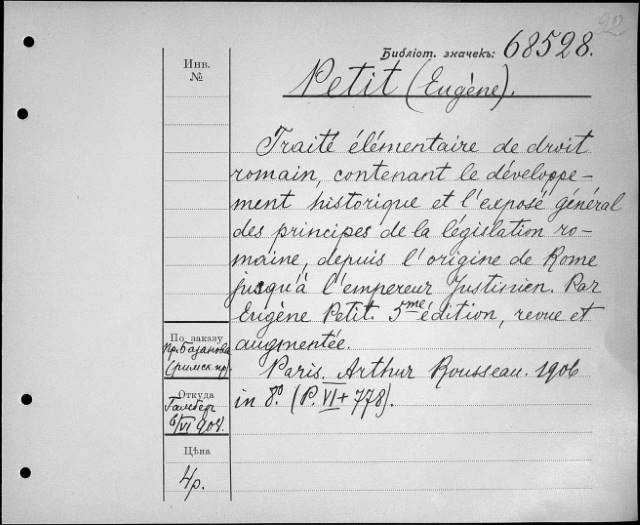 90
Библіот. значекъ: 68528.
Инв.
№
Petit (Eugène).
Traité élémentaire de droit
romain, contenant le développe-
ment historique et l'exposé général
des principes de la législation ro-
maine, depuis l'origine de Rome
jusqu'à l'empereur Justinien. Par
Eugène Petit. 5me édition, revue et
augmentée.
Paris. Arthur Rousseau. 1906
in 8°. (P. VI + 778).
По заказу
пр. Базанова
(римск. пр.)
Откуда
6/VI 908.
Цѣна
4р.